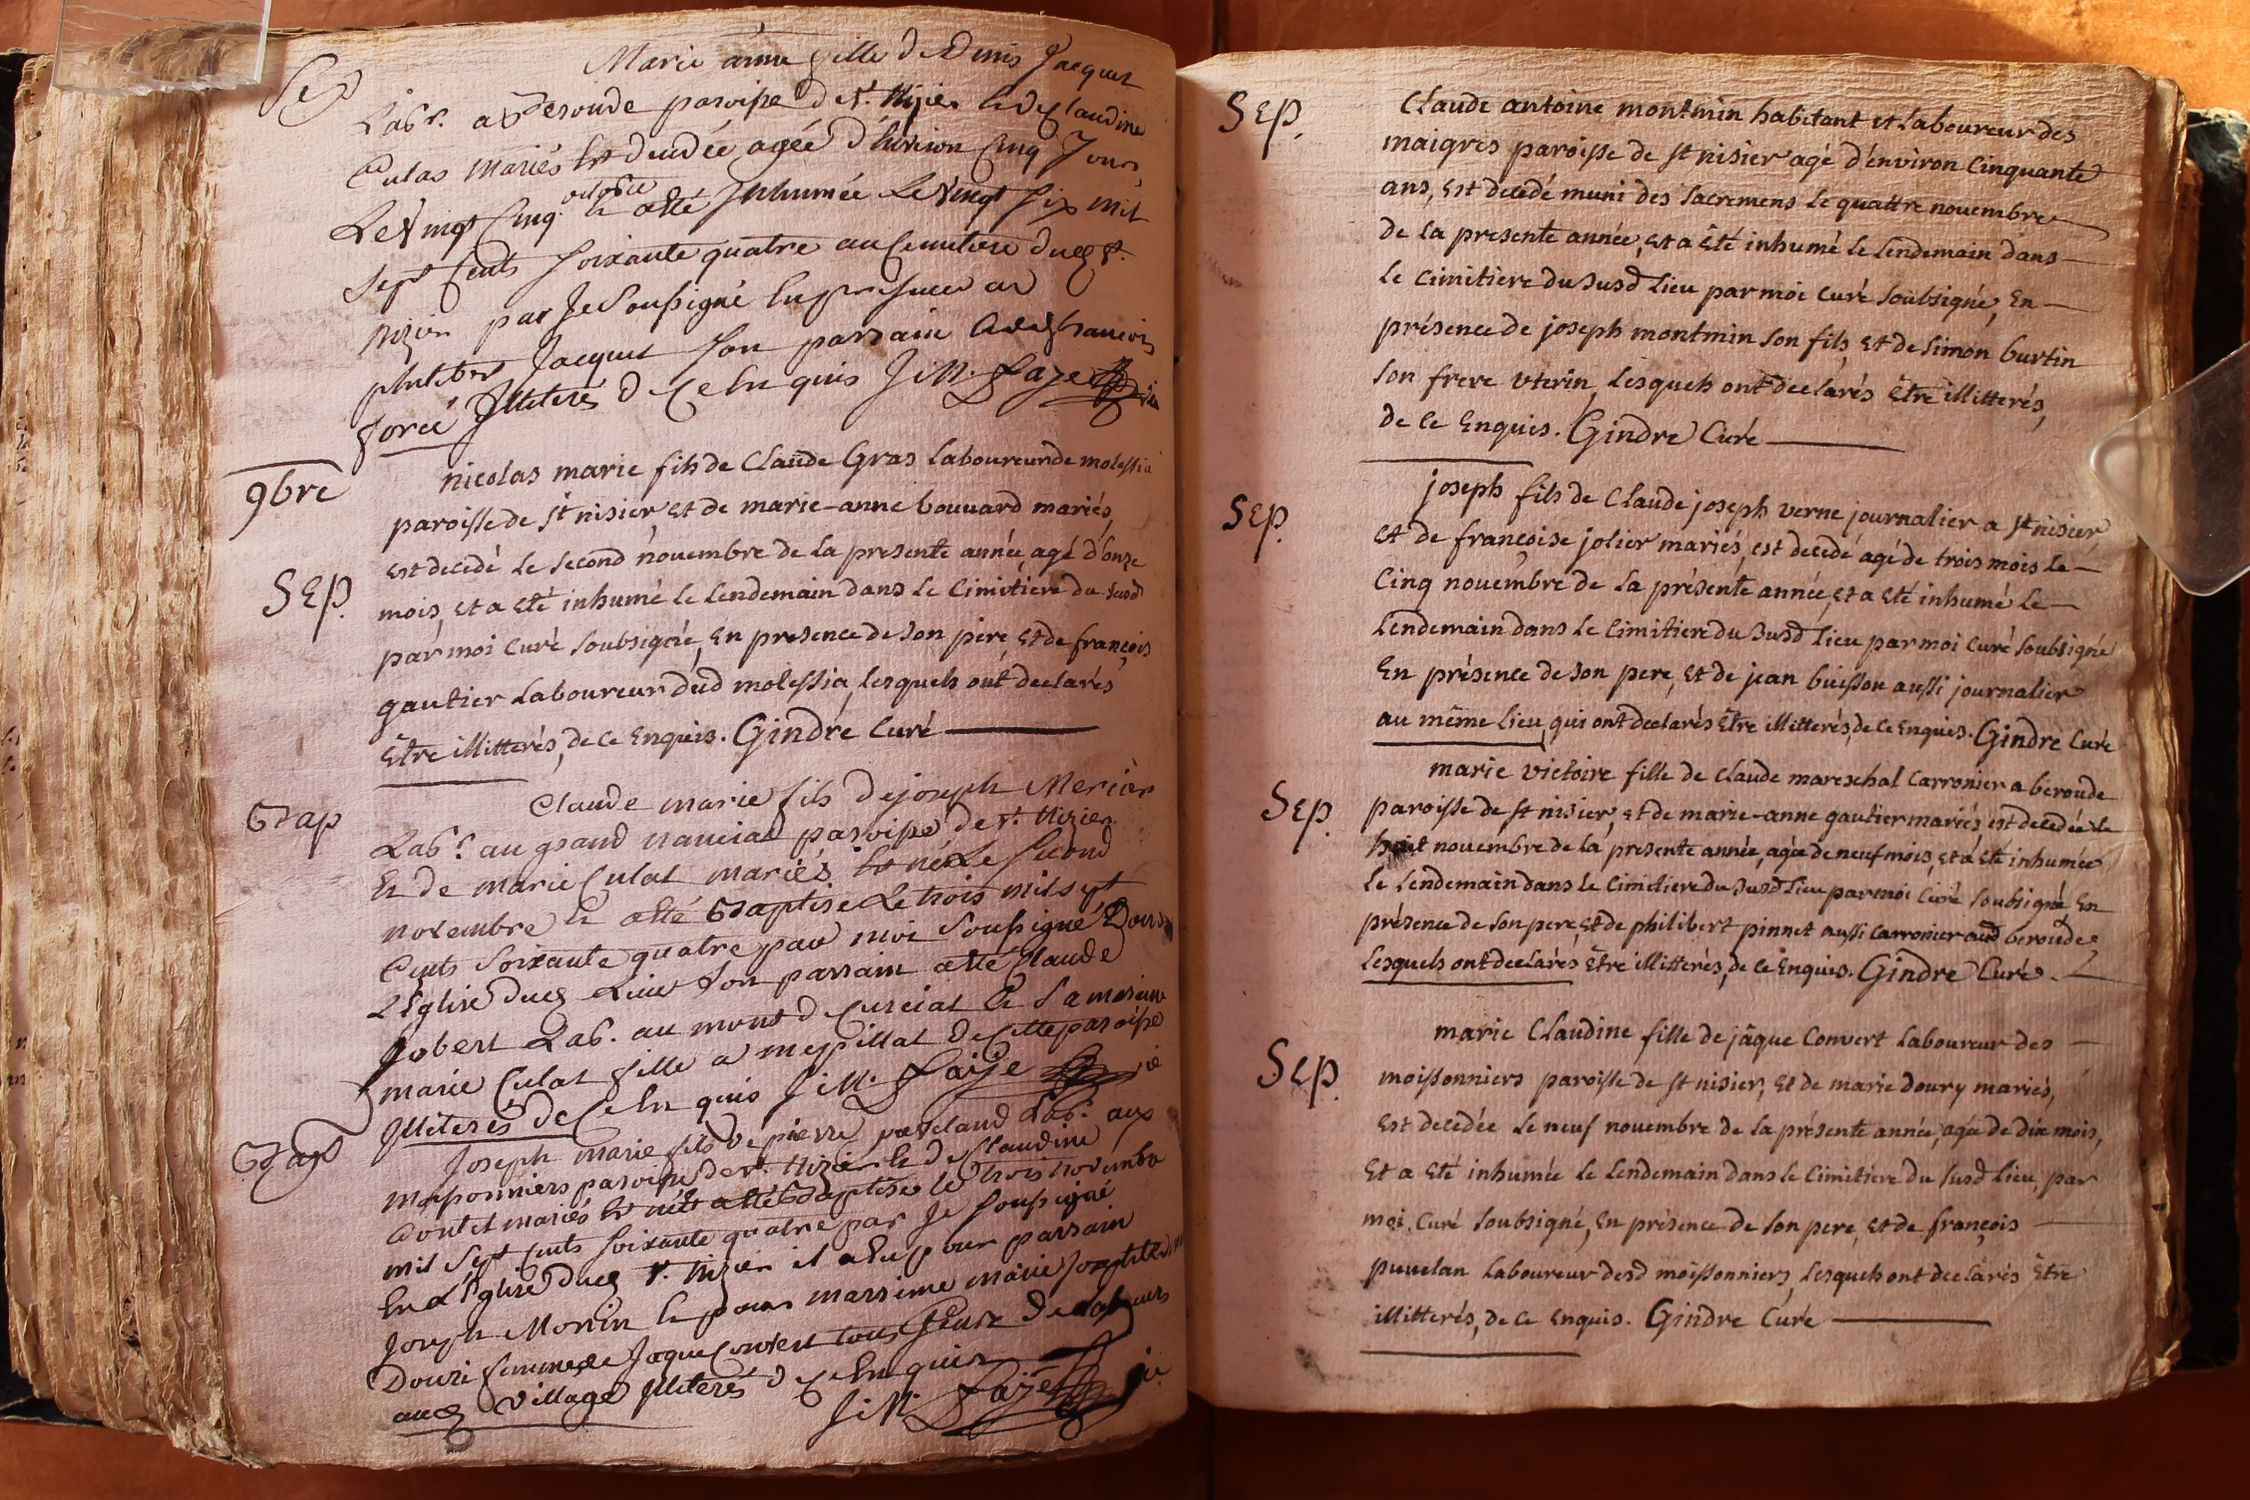 Sep
Marie anne fille de Denis Jacquet
Lab.r a Beroude paroisse de s.t Nizier et de Claudine
Culas Mariés Est decedée agée d'environ Cinq Jours
octobre
Le Vingt Cinq et a eté Inhumée Le Vingt six mil
sept Cents soixante quatre au Cemitiere dud s.t
Nizier par Je Soussigné En presence de
philibert Jacquet son parrain et de françois
Illiterés de Ce En quis J: M. Laye
9bre
nicolas marie fils de Claude Gras laboureur de molessia
paroisse de st nisier, et de marie-anne bouuard mariés,
Sep.
est decedé le second nouembre de la presente année, agé d'onze
mois, et a eté inhumé le lendemain dans le cimitiere du susd
par moi curé soubsigné, en presence de son pere, et de françois
gautier laboureur dud molessia, lesquels ont declarés
Etre illitterés, de ce enquis. Gindre Curé
Bap
Claude marie fils de joseph Mercier
Lab.r au grand nanciat paroisse de s.t Nizier
Et de marie Culat mariés Est né Le Second
novembre Et a eté Baptisé Le trois mil sept
Cents Soixante quatre par moi Soussigné Dans
L'Eglise dud Lieu son parrain a eté Claude
Jobert Lab. au mont de Curciat Et Sa maraine
marie Culat fille a mespillat de Cette paroisse
Illiterés de Ce En quis J: M. Laye
Bap
Joseph Marie fils de pierre puveland Lab.r aux
Moissonniers paroisse de s.t Nizier Et de Claudine
Contet mariés Est né Et a eté Baptisé le trois novembre
mil Sept Cents Soixante quatre par Je Soussigné
En L'Eglise dud s.t Nizier il a Eu pour parrain
Joseph Morin Et pour marrine marie
Douri femme de Jaque Convert tous deux de
aud Village Illiterés de Ce En quis
J: M. Laye
Sep.
Claude antoine montmin habitant et laboureur des
maigres paroisse de st nisier agé d'environ cinquante
ans, est decedé muni des sacremens le quattre nouembre
de la presente année, et a eté inhumé le lendemain dans
le cimitiere du susd lieu par moi curé soubsigné, en
présence de joseph montmin son fils, et de simon burtin
son frere vterin, lesquels ont declarés être illitterés,
de ce enquis. Gindre Curé
Sep.
joseph fils de Claude joseph verne journalier a st nisier,
et de françoise jolier mariés, est decedé agé de trois mois le
cinq nouembre de la présente année, et a eté inhumé le
lendemain dans le cimitiere du susd lieu par moi curé soubsigné
En présence de son pere, et de jean buisson aussi journalier
au même lieu, qui ont declarés être illitterés, de ce enquis. Gindre Curé
Sep.
marie victoire fille de claude mareschal carronier a beroude
paroisse de st nisier, et de marie-anne gautier mariés, est decedée le
huit nouembre de la presente année, agée de neuf mois, et a eté inhumée
le lendemain dans le cimitiere du susd lieu par moi curé soubsigné en
présence de son pere, et de philibert pinnet aussi carronier aud beroude
lesquels ont declarés être illitterés, de ce enquis. Gindre Curé.
Sep.
marie Claudine fille de jâque Convert laboureur des
moissonniers paroisse de st nisier, et de marie doury mariés,
est decedée le neuf nouembre de la présente année, agée de dix mois,
et a eté inhumée le lendemain dans le cimitiere du susd lieu, par
moi curé soubsigné, en présence de son pere, et de françois
puuelan laboureur desd moissonniers, lesquels ont declarés être
illitterés, de ce enquis. Gindre Curé